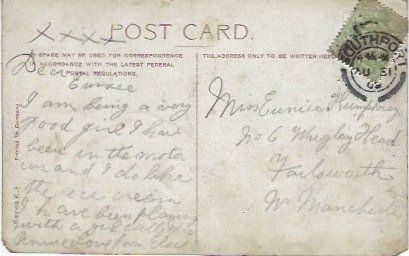 xxxx
POST CARD.
THIS SPACE MAY BE USED FOR CORRESPONDENCE
IN ACCORDANCE WITH THE LATEST FEDERAL
POSTAL REGULATIONS.
THE ADDRESS ONLY TO BE WRITTEN HERE
SOUTHPORT
31
Dear
Eunice
I am being a very
good girl I have
been in the motor
car and I do like
the ice cream
have been playing
with a girl called
Annie Love from Elsie
Miss Eunice Humphreys
No 6 Wrigley Head
Failsworth
Nr Manchester
Printed in Germany
Series K.